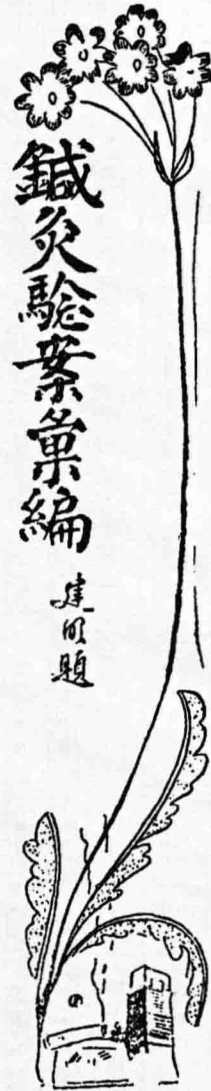 鍼灸驗案彙編
建明題